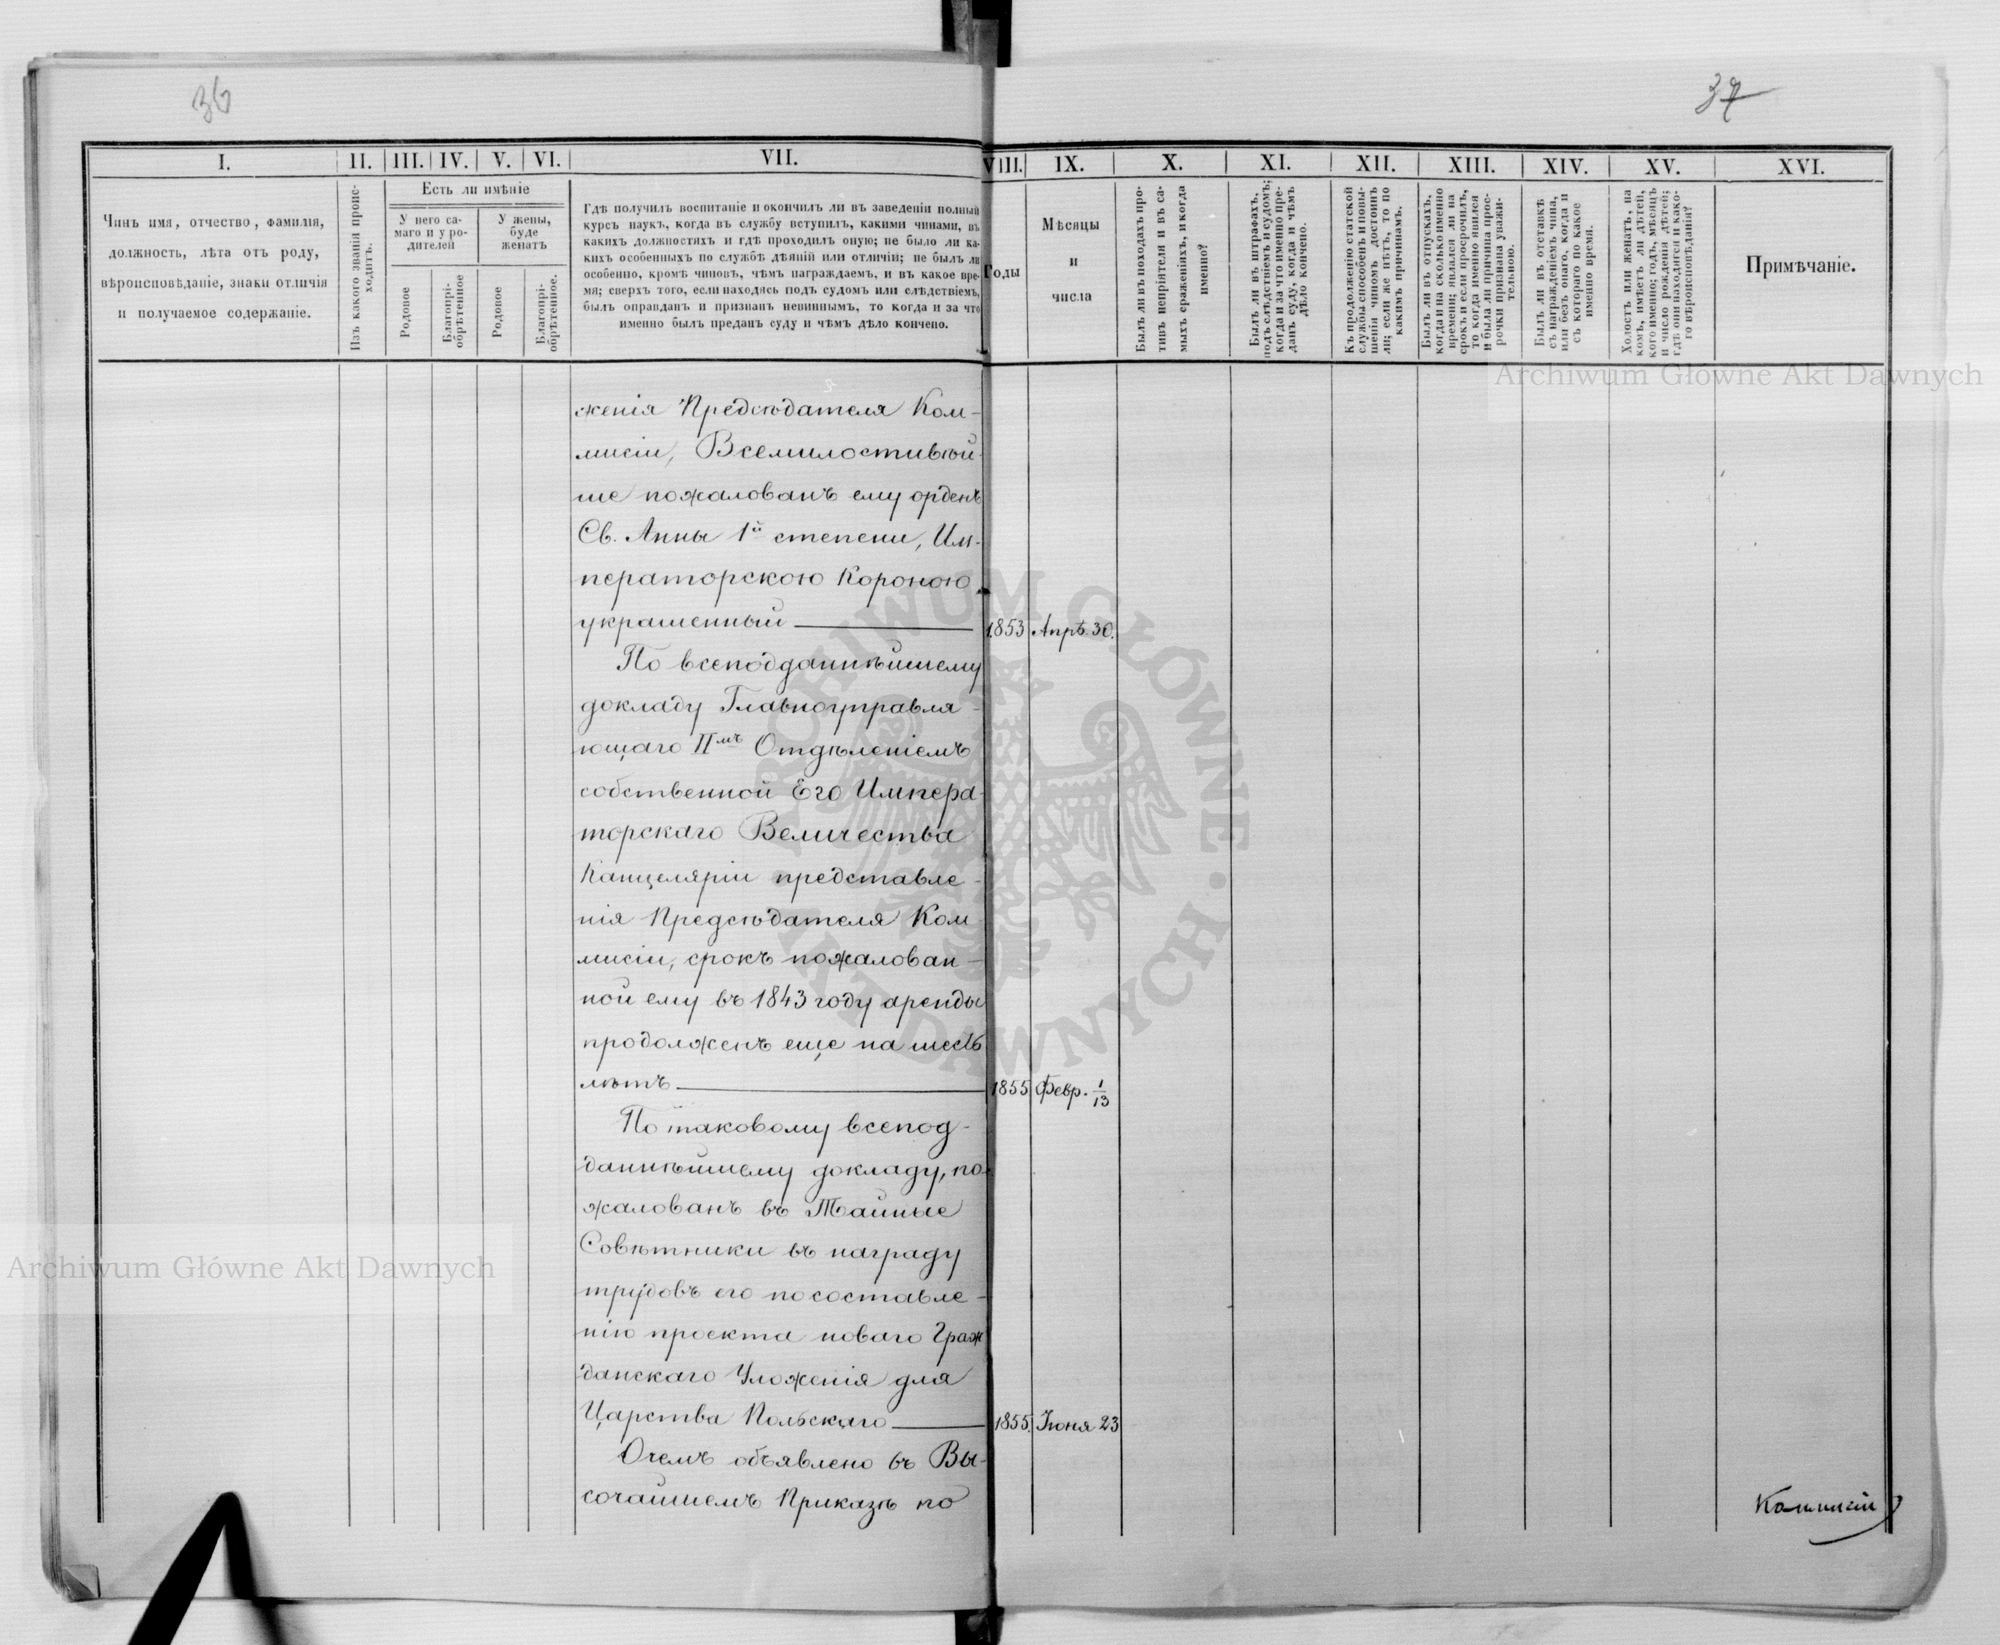 36
37
I.
II.
III.
IV.
V.
VI.
VII.
VIII.
IX.
X.
XI.
XII.
XIII.
XIV.
XV.
XVI.
Чинъ имя, отчество, фамилія,
должность, лѣта отъ роду,
вѣроисповѣданіе, знаки отличія
и получаемое содержаніе.
Изъ какого званія проис-
ходитъ.
Есть ли имѣніе
У него са-
маго и у ро-
дителей
У жены,
буде
женатъ
Родовое
Благопрі-
обрѣтенное
Родовое
Благопрі-
обрѣтенное.
Гдѣ получилъ воспитаніе и окончилъ ли въ заведеніи полный
курсъ наукъ, когда въ службу вступилъ, какими чинами, въ
какихъ должностяхъ и гдѣ проходилъ оную; не было ли ка-
кихъ особенныхъ по службѣ дѣяній или отличій; не былъ ли
особенно, кромѣ чиновъ, чѣмъ награждаемъ, и въ какое вре-
мя; сверхъ того, если находясь подъ судомъ или слѣдствіемъ,
былъ оправданъ и признанъ невиннымъ, то когда и за что
именно былъ преданъ суду и чѣмъ дѣло кончено.
Годы
Мѣсяцы
и
числа
Былъ ли въ походахъ про-
тивъ непріятеля и въ са-
мыхъ сраженіяхъ, и когда
именно?
Былъ ли въ штрафахъ,
подъ слѣдствіемъ и судомъ;
когда и за что именно пре-
данъ суду, когда и чѣмъ
дѣло кончено.
Къ продолженію статской
службы способенъ и повы-
шенія чиномъ достоинъ
ли; если же нѣтъ, то по
какимъ причинамъ.
Былъ ли въ отпускахъ,
когда и на сколько именно
времени; являлся ли на
срокъ и если просрочилъ,
то когда именно явился
и была ли причина прос-
рочки признана уважи-
тельною.
Былъ ли въ отставкѣ
съ награжденіемъ чина,
или безъ онаго, когда и
съ котораго по какое
именно время.
Холостъ или женатъ, на
комъ, имѣетъ ли дѣтей,
кого именно; годъ, мѣсяцъ
и число рожденія дѣтей;
гдѣ они находятся и како-
го вѣроисповѣданія?
Примѣчаніе.
женія Предсѣдателя Ком-
мисіи, Всемилостивѣй-
ше пожалованъ ему орденъ
Св. Анны 1й степени, Им-
ператорскою Короною
украшенный 1853 Апрѣ. 30.
По всеподданнѣйшему
докладу Главноуправля-
ющаго IIмъ Отдѣленіемъ
собственной Его Импера-
торскаго Величества
Канцеляріи представле-
нія Предсѣдателя Ком-
мисіи, срокъ пожалован-
ной ему въ 1843 году аренды
продолженъ еще на шесть
лѣтъ 1855 Февр. 1/13
По таковому всепод-
даннѣйшему докладу, по-
жалованъ въ Тайные
Совѣтники въ награду
трудовъ его по составле-
нію проекта новаго Граж-
данскаго Уложенія для
Царства Польскаго 1855. Іюня 23
О чемъ объявлено въ Вы-
сочайшемъ Приказѣ по
Archiwum Główne Akt Dawnych
Archiwum Główne Akt Dawnych
ARCHIWUM GŁÓWNE · AKT DAWNYCH